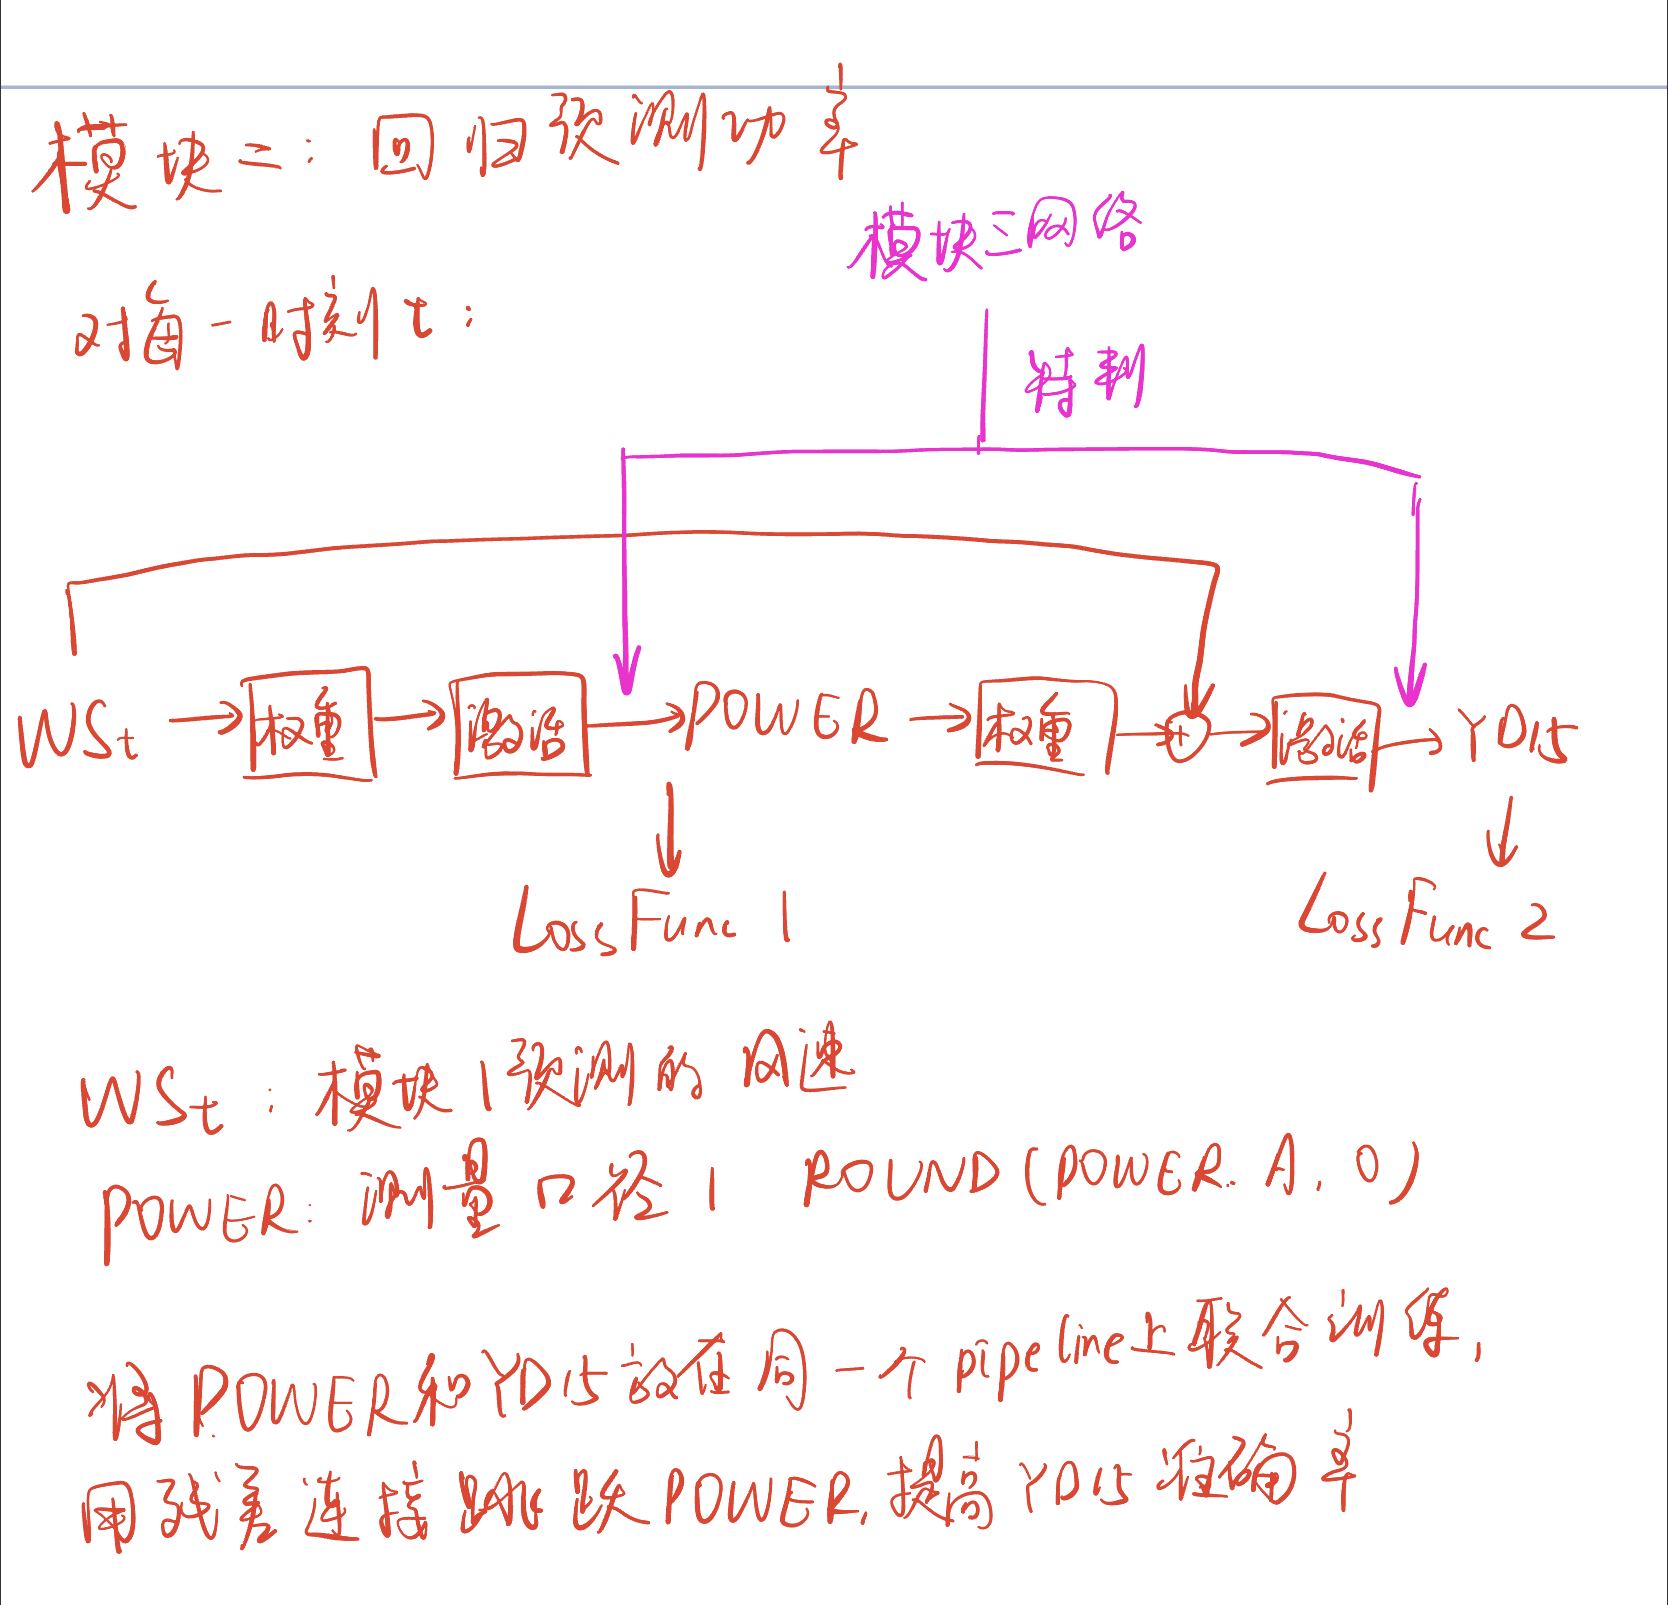 模块二：回归预测功率
模块三网络
对每一时刻t：
特判
WSt → 权重 → 激活 → POWER → 权重 → + → 激活 → YD15
Loss Func 1
Loss Func 2
WSt：模块1预测的风速
POWER：测量口径1 ROUND(POWER.A, 0)
将POWER和YD15放在同一个pipeline上联合训练，
用残差连接跳跃POWER，提高YD15准确率